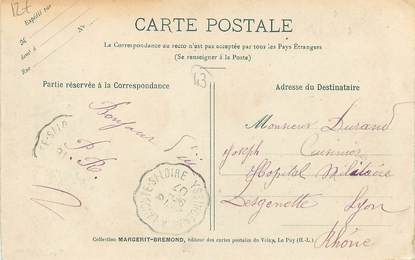 127
Expédié par
M
demt à
Rue
N°
CARTE POSTALE
La Correspondance au recto n'est pas acceptée par tous les Pays Étrangers
(Se renseigner à la Poste)
Partie réservée à la Correspondance
43
Adresse du Destinataire
Bonjour
P. R.
Monsieur Durand
Joseph Cuisinier
Hopital Militaire
Desgenette Lyon
Rhône
Collection MARGERIT-BREMOND, éditeur des cartes postales du Velay, Le Puy (H.-L.)